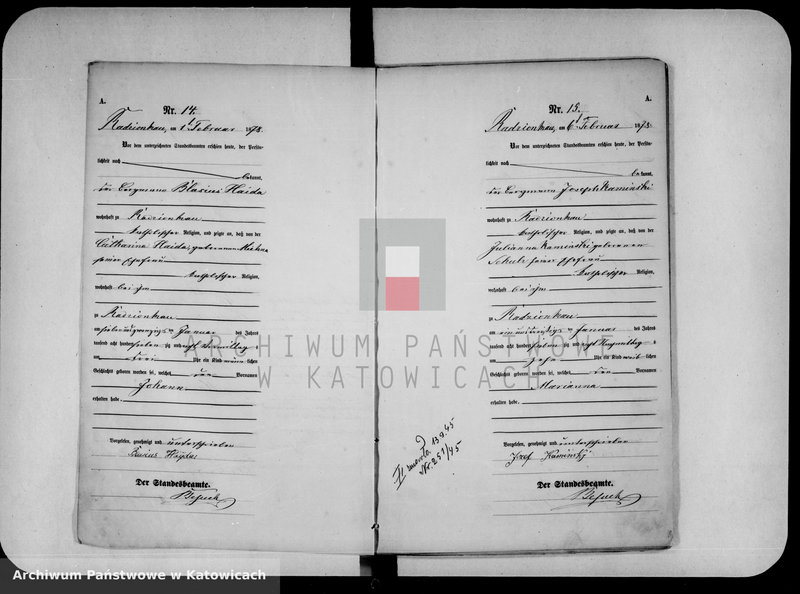 A.
Nr. 14.
Radzionkau, am 1 ten Februar 1878.
Vor dem unterzeichneten Standesbeamten erschien heute, der Persön-
lichkeit nach
bekannt,
der Bergmann Blasius Haida
wohnhaft zu Radzionkau
katholischer Religion, und zeigte an, daß von der
Catharina Haida, geborenen
seiner Ehefrau
katholischer Religion,
wohnhaft bei ihm
zu Radzionkau
am siebenundzwanzigsten Januar des Jahres
tausend acht hundert siebenzig und acht Vormittag s
um drei Uhr ein Kind männlichen
Geschlechts geboren worden sei, welches den Vornamen
Johann
erhalten habe.
Vorgelesen, genehmigt und unterschrieben
Der Standesbeamte.
A.
Nr. 15.
Radzionkau, am 6 ten Februar 1878.
Vor dem unterzeichneten Standesbeamten erschien heute, der Persön-
lichkeit nach
bekannt,
der Bergmann Joseph Kaminski
wohnhaft zu Radzionkau
katholischer Religion, und zeigte an, daß von der
Julianna Kaminski geborenen
Schulz seiner Ehefrau
katholischer Religion,
wohnhaft bei ihm
zu Radzionkau
am einunddreißigsten Januar des Jahres
tausend acht hundert siebenzig und acht Vormittag s
um zehn Uhr ein Kind weiblichen
Geschlechts geboren worden sei, welches den Vornamen
Marianna
erhalten habe.
Vorgelesen, genehmigt und unterschrieben
Józef Kamiński
Der Standesbeamte.
13.9.45
Nr. 251/45
ARCHIWUM PAŃSTWOWE
W KATOWICACH
Archiwum Państwowe w Katowicach